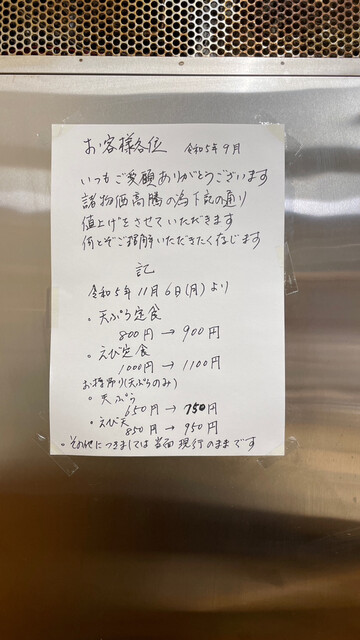 お客様各位 令和5年9月
いつもご愛顧ありがとうございます
諸物価高騰の為下記の通り
値上げをさせていただきます
何とぞご理解いただきたく存じます
記
令和5年11月6日(月)より
・天ぷら定食
800円→900円
・えび定食
1000円→1100円
お持帰り(天ぷらのみ)
・天ぷら
650円→750円
・えび天
850円→950円
・その他につきましては当面現行のままです